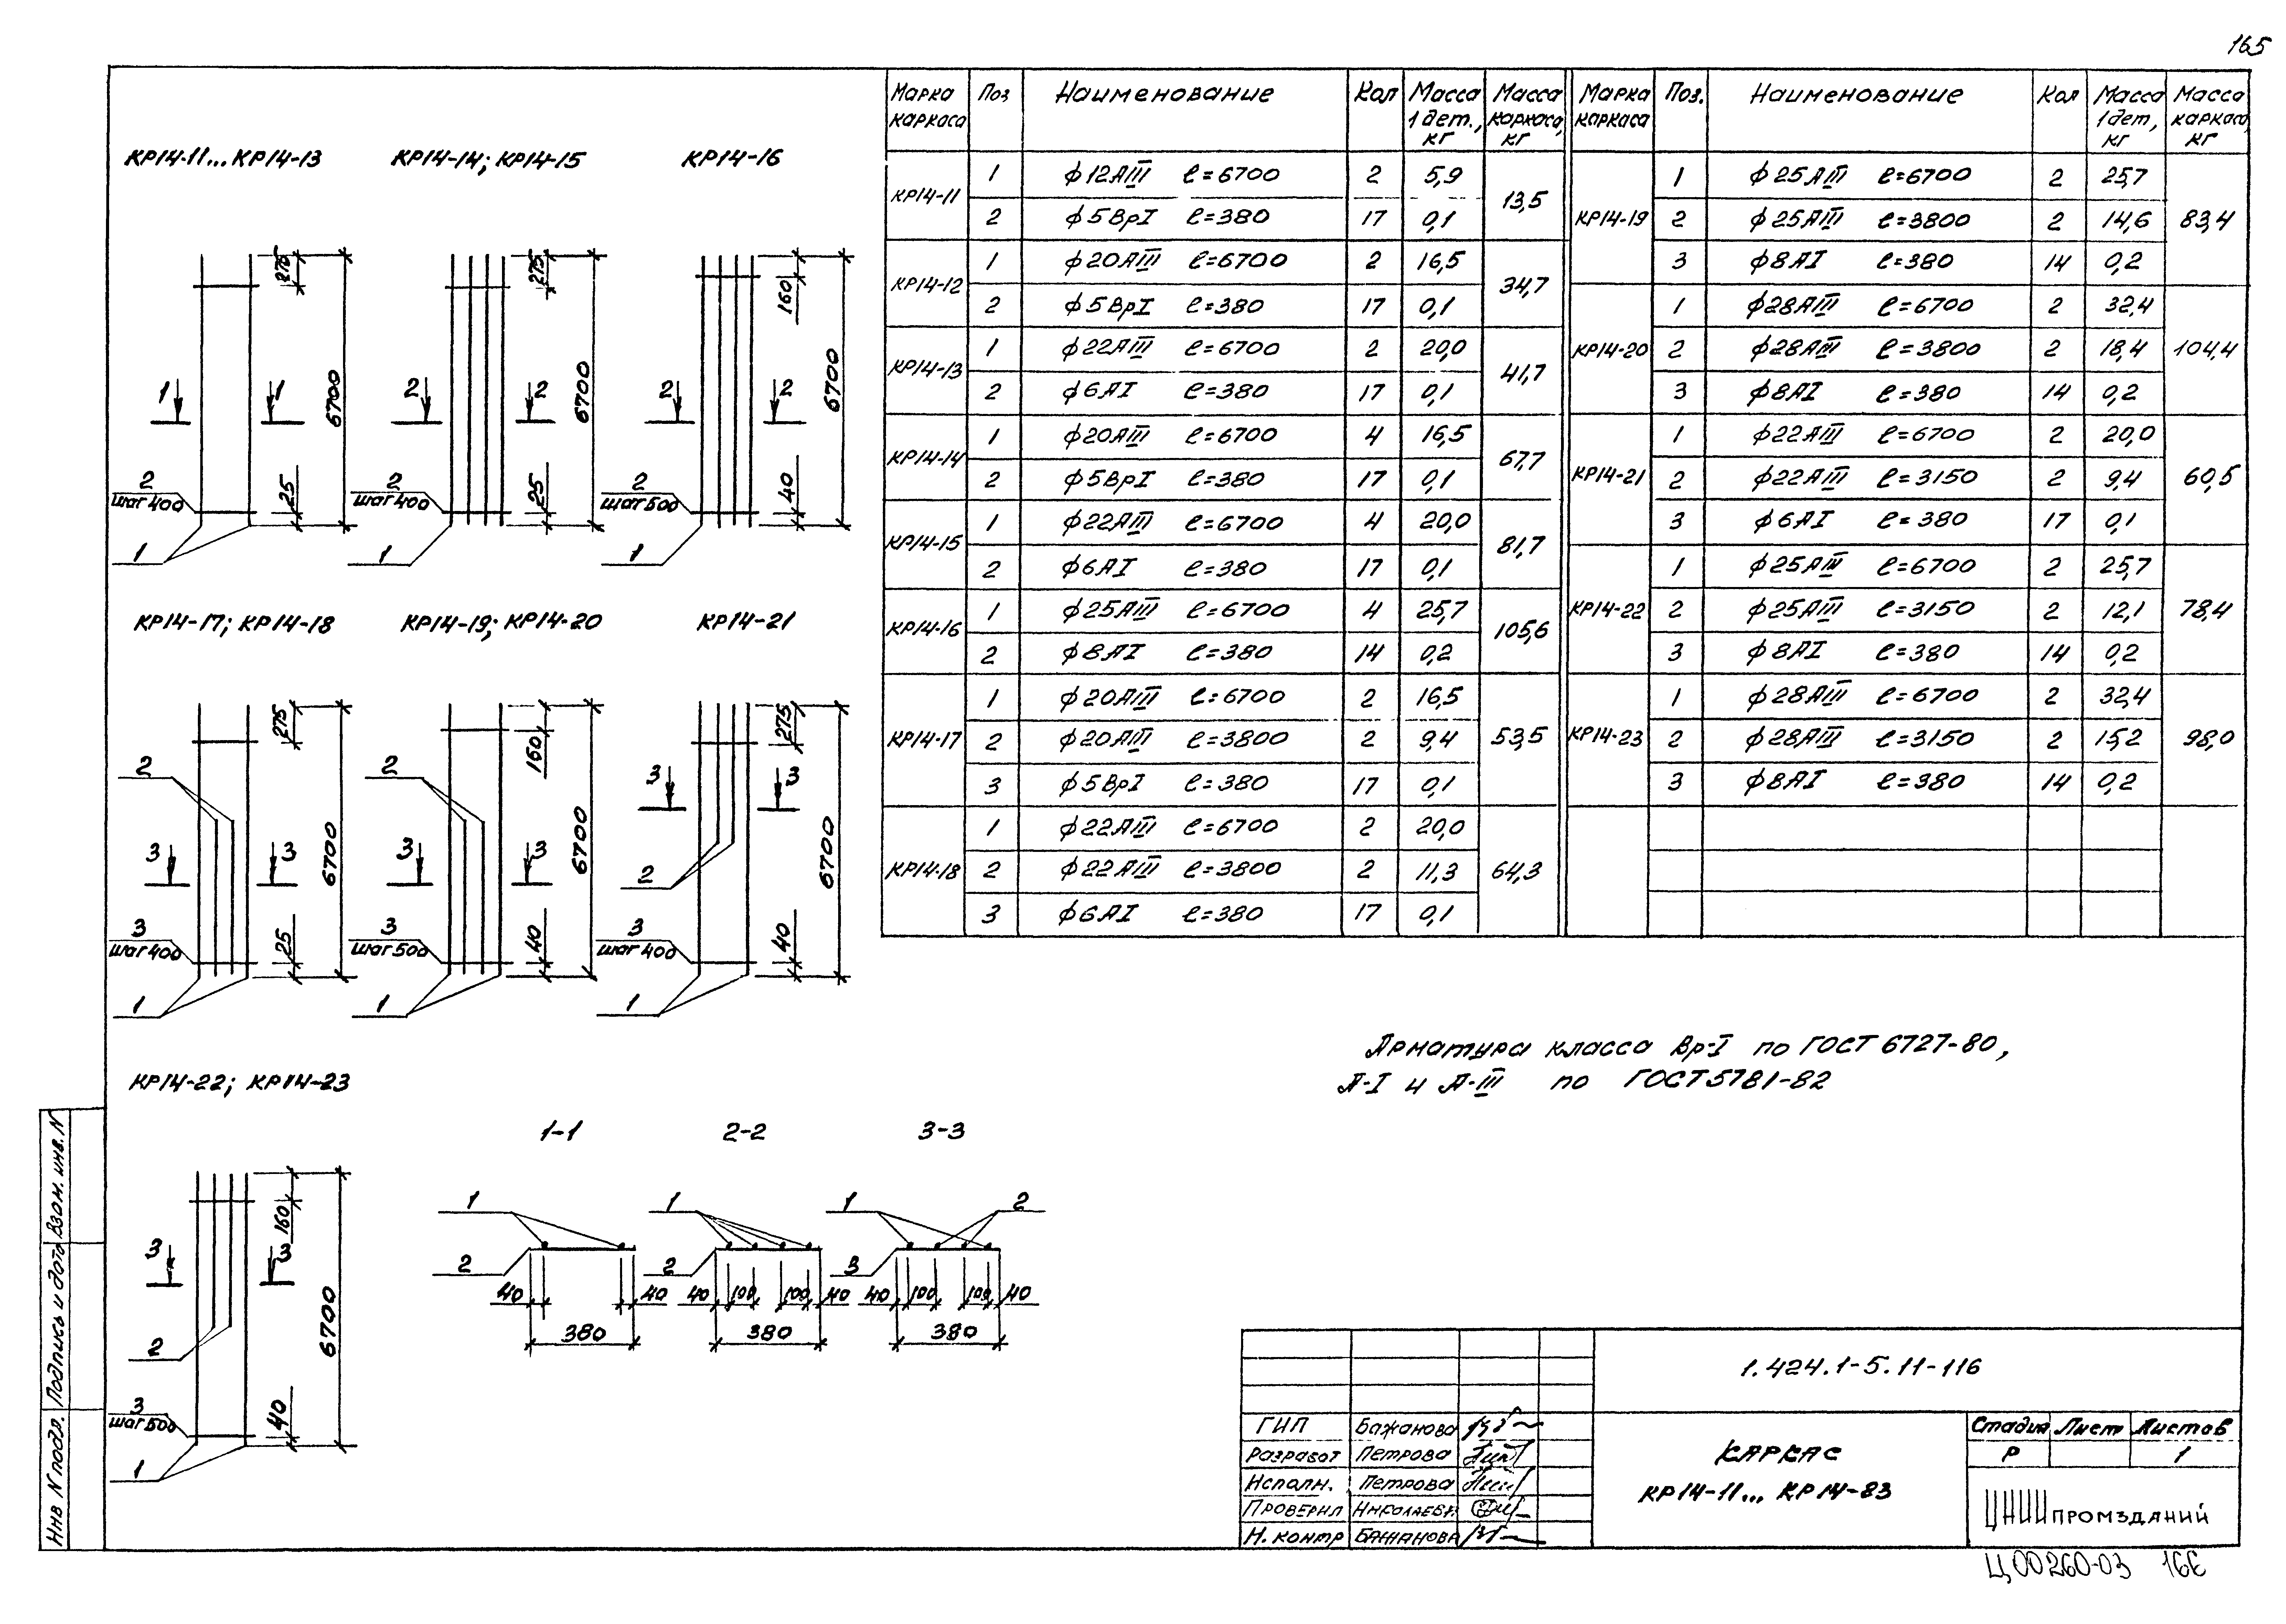 165
КР14-11... КР14-13
КР14-14; КР14-15
КР14-16
275
6700
1 1
2
шаг 400
25
1
275
6700
2 2
2
шаг 400
25
1
160
6700
2 2
2
шаг 500
40
1
КР14-17; КР14-18
КР14-19; КР14-20
КР14-21
275
2
6700
3 3
3
шаг 400
25
1
160
2
6700
3 3
3
шаг 500
40
1
275
3 3
6700
2
3
шаг 400
40
1
КР14-22; КР14-23
160
3 3
6700
2
3
шаг 500
40
1
1-1
1
2
40 40
380
2-2
1
2
40 100 100 40
380
3-3
1 2
3
40 100 100 40
380
Марка каркаса Поз Наименование Кол Масса 1 дет., кг Масса каркаса, кг
КР14-11 1 ф12АIII ℓ=6700 2 5,9 13,5
2 ф5ВрI ℓ=380 17 0,1
КР14-12 1 ф20АIII ℓ=6700 2 16,5 34,7
2 ф5ВрI ℓ=380 17 0,1
КР14-13 1 ф22АIII ℓ=6700 2 20,0 41,7
2 ф6АI ℓ=380 17 0,1
КР14-14 1 ф20АIII ℓ=6700 4 16,5 67,7
2 ф5ВрI ℓ=380 17 0,1
КР14-15 1 ф22АIII ℓ=6700 4 20,0 81,7
2 ф6АI ℓ=380 17 0,1
КР14-16 1 ф25АIII ℓ=6700 4 25,7 105,6
2 ф8АI ℓ=380 14 0,2
КР14-17 1 ф20АIII ℓ=6700 2 16,5 53,5
2 ф20АIII ℓ=3800 2 9,4
3 ф5ВрI ℓ=380 17 0,1
КР14-18 1 ф22АIII ℓ=6700 2 20,0 64,3
2 ф22АIII ℓ=3800 2 11,3
3 ф6АI ℓ=380 17 0,1
Марка каркаса Поз. Наименование Кол Масса 1 дет, кг Масса каркаса, кг
КР14-19 1 ф25АIII ℓ=6700 2 25,7 83,4
2 ф25АIII ℓ=3800 2 14,6
3 ф8АI ℓ=380 14 0,2
КР14-20 1 ф28АIII ℓ=6700 2 32,4 104,4
2 ф28АIII ℓ=3800 2 18,4
3 ф8АI ℓ=380 14 0,2
КР14-21 1 ф22АIII ℓ=6700 2 20,0 60,5
2 ф22АIII ℓ=3150 2 9,4
3 ф6АI ℓ=380 17 0,1
КР14-22 1 ф25АIII ℓ=6700 2 25,7 78,4
2 ф25АIII ℓ=3150 2 12,1
3 ф8АI ℓ=380 14 0,2
КР14-23 1 ф28АIII ℓ=6700 2 32,4 98,0
2 ф28АIII ℓ=3150 2 15,2
3 ф8АI ℓ=380 14 0,2
Арматура класса Вр-I по ГОСТ 6727-80,
А-I и А-III по ГОСТ 5781-82
Инв N подл. Подпись и дата Взам. инв. N
1.424.1-5.11-116
ГИП Бажанова
Разработ Петрова
Исполн. Петрова
Проверил Николаева
Н. контр Бажанова
Каркас
КР14-11... КР14-83
Стадия Лист Листов
Р 1
ЦНИИпромзданий
Ц00260-03 166